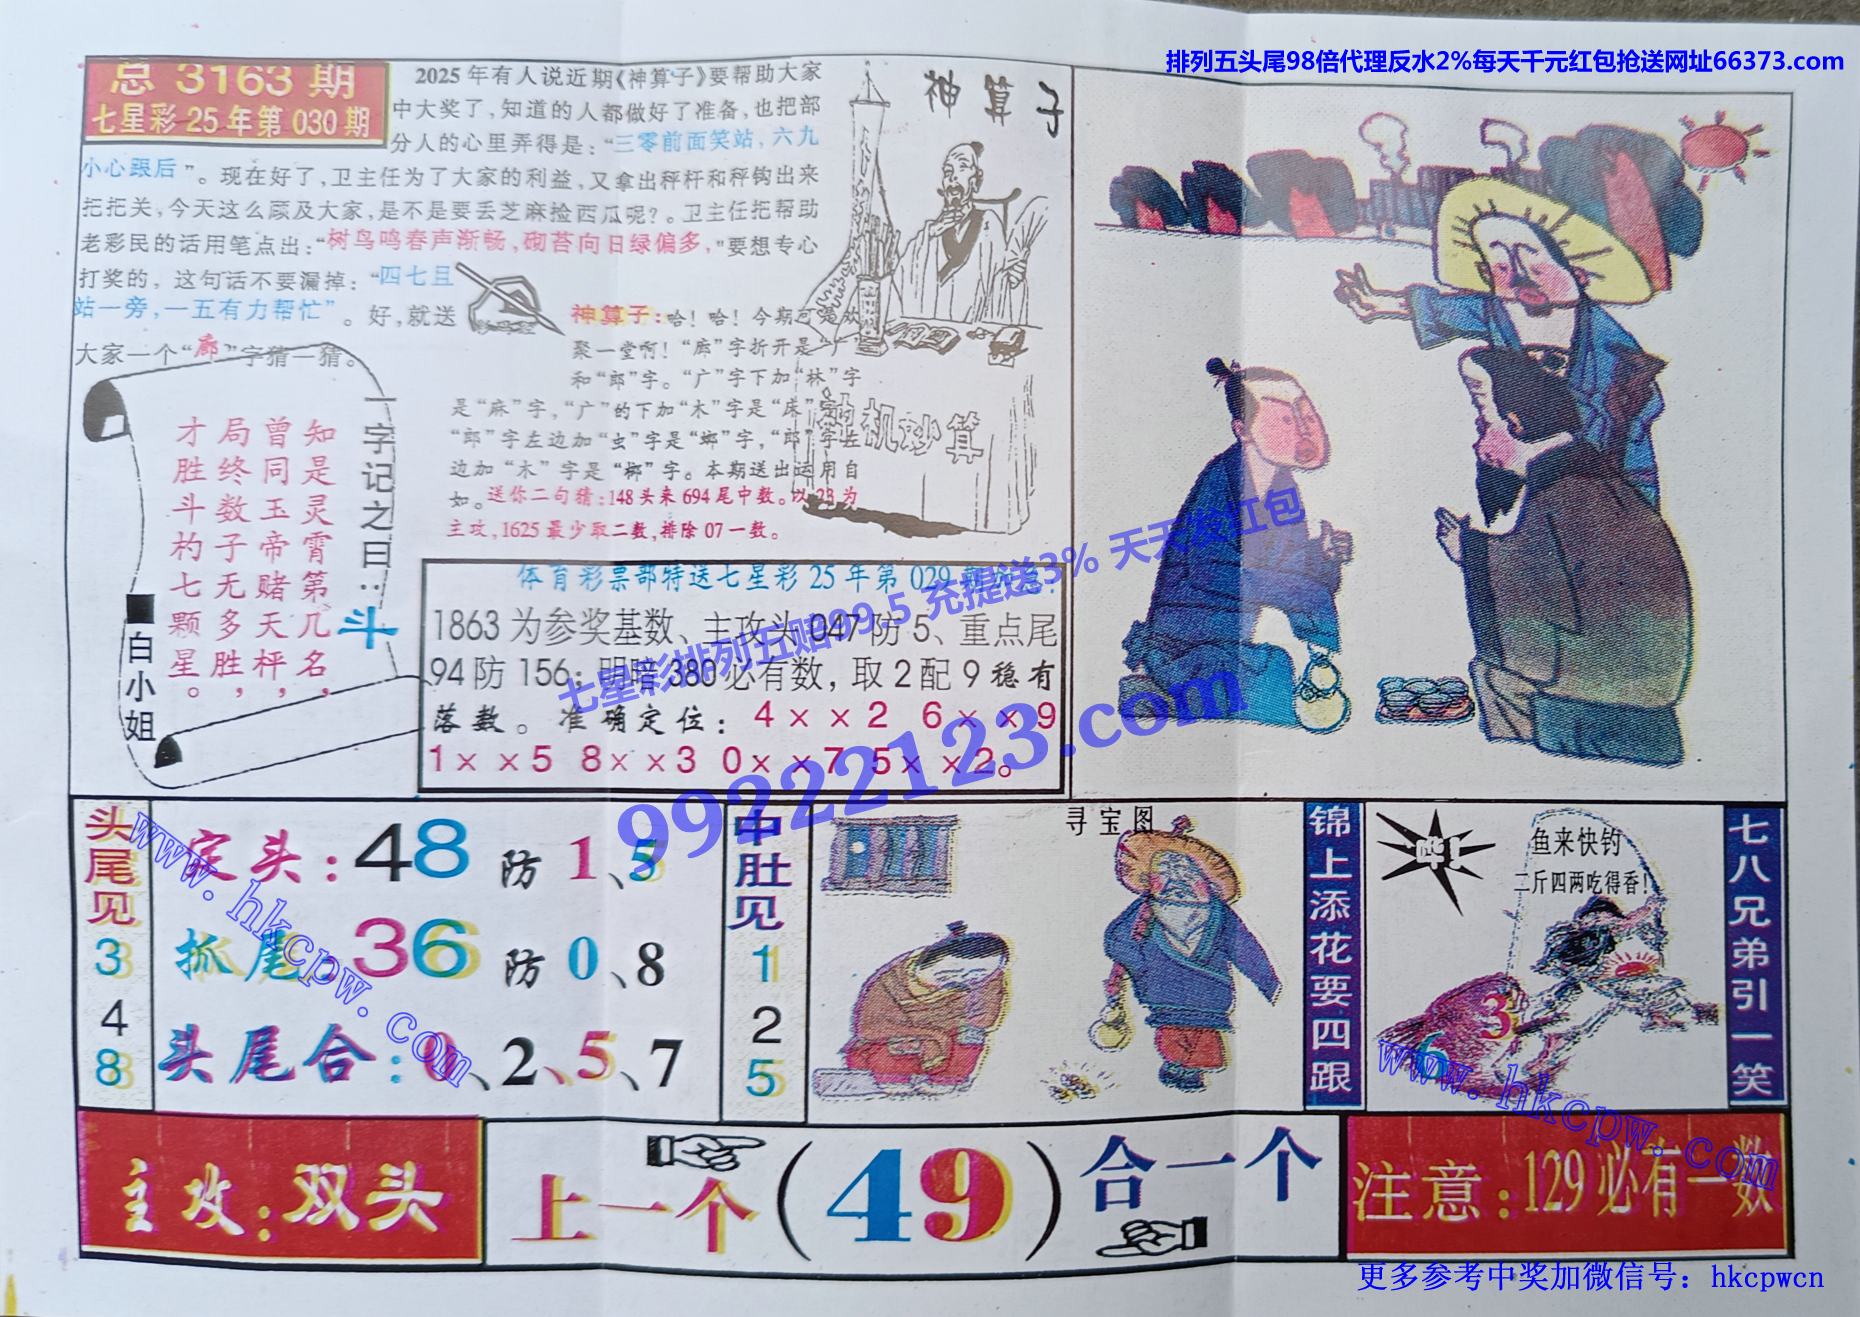 排列五头尾98倍代理反水2%每天千元红包抢送网址66373.com
总 3163 期
七星彩 25 年第 030 期
2025年有人说近期《神算子》要帮助大家
中大奖了,知道的人都做好了准备,也把部
分人的心里弄得是:“三零前面笑站,六九
小心跟后”。现在好了,卫主任为了大家的利益,又拿出秤杆和秤钩出来
把把关,今天这么顾及大家,是不是要丢芝麻捡西瓜呢?。卫主任把帮助
老彩民的话用笔点出:“树鸟鸣春声渐畅,砌苔向日绿偏多,"要想专心
打奖的,这句话不要漏掉:“四七且
站一旁,一五有力帮忙”。好,就送
大家一个“廊”字猜一猜。
神算子
神算子:哈!哈!今期可是欢
聚一堂啊!“廊”字折开是“广”
和“郎”字。“广”字下加“林”字
是“麻”字,“广”的下加“木”字是“床”字
“郎”字左边加“虫”字是“螂”字,“郎”字左
边加“木”字是“榔”字。本期送出运用自
如。送你二句猜:148头来694尾中数。以23为
主攻,1625最少取二数,排除07一数。
神机妙算
一字记之曰:斗
知是灵霄第几名,
曾同玉帝赌天枰,
局终数子无多胜,
才胜斗杓七颗星。
白小姐
体育彩票部特送七星彩25年第029期
1863为参奖基数、主攻头047防5、重点尾
94防156;明暗380必有数,取2配9稳有
落数。准确定位:4××2 6××9
1××5 8××3 0××7 5××2。
七星彩排列五赔99.5 充提送3% 天天发红包
99222123.com
头尾见
3
4
8
定头:48防1、5
抓尾:36防0、8
头尾合:0、2、5、7
中肚见
1
2
5
寻宝图
锦上添花要四跟
鱼来快钓
二斤四两吃得香!
3
6
七八兄弟引一笑
www.hkcpw.com
www.hkcpw.com
主攻:双头
上一个(49)合一个
注意:129必有一数
更多参考中奖加微信号:hkcpwcn